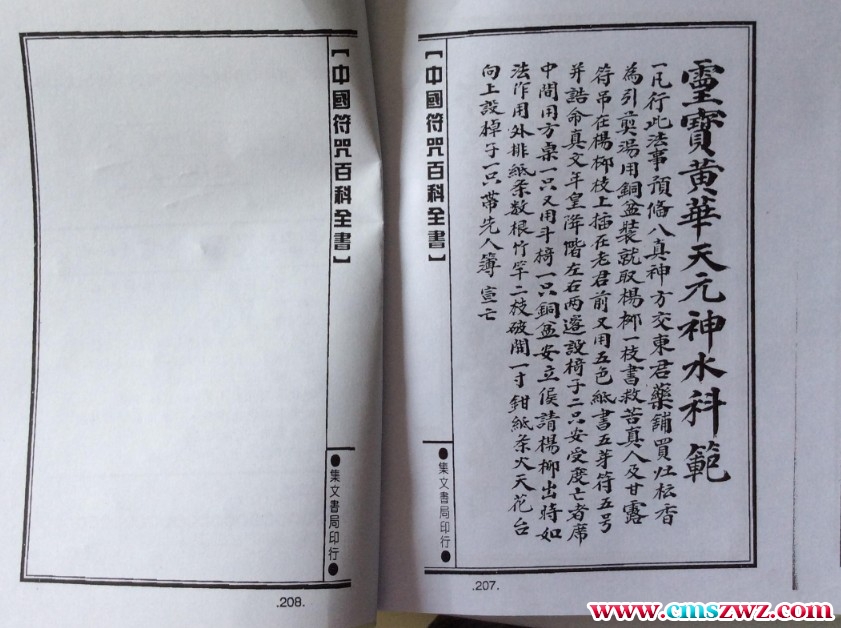 靈寶黄華天元神水科範
一凡行此法事預俻八真神方交東君藥舖買灶枟香
為引煎湯用銅盆裝就取楊柳一枝書救苦真人及甘露
符吊在楊柳枝上插在老君前又用五色紙書五芽符五号
并誥命真文年皇降階左右兩邊設椅子二只安受度亡者席
中間用方桌一只又用斗椅一只銅盆安立侯請楊柳出時如
法作用外排紙条数根竹竿二枝破開一寸鉗紙条火天花台
向上設棹子一只帶先人簿 宣亡
【中國符咒百科全書】
●集文書局印行●
.207.
【中國符咒百科全書】
●集文書局印行●
.208.
www.cmszwz.com